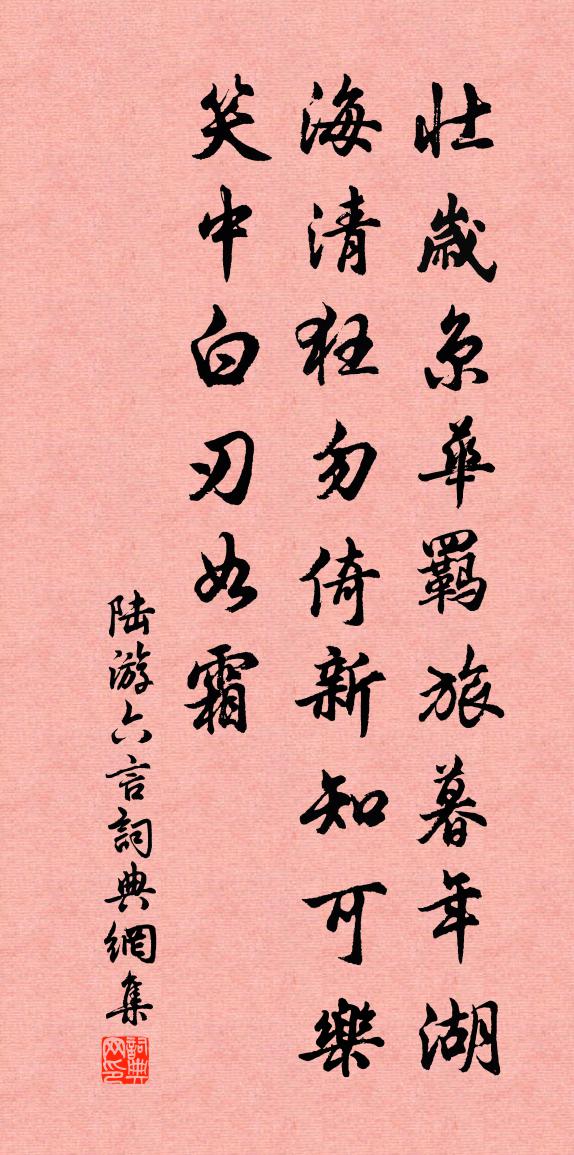 壯歲京華羈旅暮年湖
海清狂勿倚新知可樂
笑中白刃如霜
陆游六言詞典網集
詞典网印